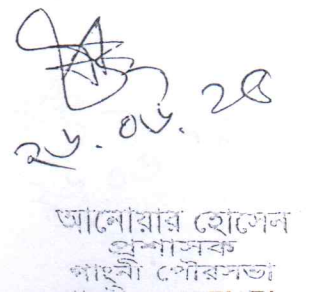 ২৬.০৬.২৫
আনোয়ার হোসেন
প্রশাসক
গাংনী পৌরসভা